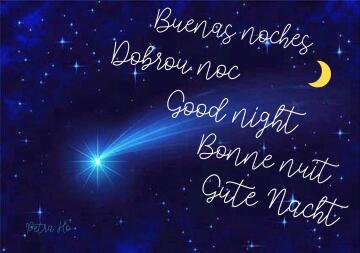 Buenas noches
Dobrou noc
Good night
Bonne nuit
Gute Nacht
Petra Ho